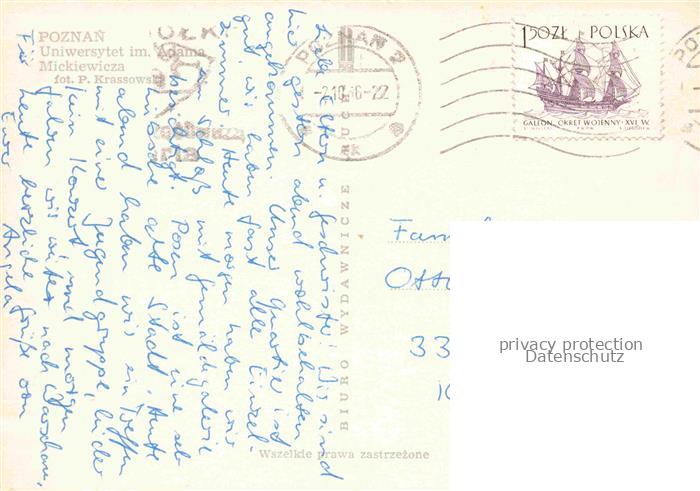 POZNAŃ
Uniwersytet im. Adama
Mickiewicza
fot. P. Krassowski
POZNAŃ 2
-2.10.16-22
1,50 ZŁ POLSKA
GALEON, OKRĘT WOJENNY - XVI W.
Liebe Eltern u. Geschwister! Wir sind
hier gestern abend wohlbehalten
angekommen. Unser Quartier ist
gut, wir haben fast alle Einzel-
zimmer. Heute morgen haben wir
Schloß mit Gemäldegalerie
besichtigt. Posen ist eine sehr
hübsche alte Stadt. Heute
abend haben wir ein Treffen
mit einer Jugendgruppe, leider
kein Konzert, und morgen
fahren wir weiter nach Warschau.
Für heute herzliche Grüße von
Eurer Angela
BIURO WYDAWNICZE RUCH
Wszelkie prawa zastrzeżone
Fam
Otto
33
privacy protection
Datenschutz